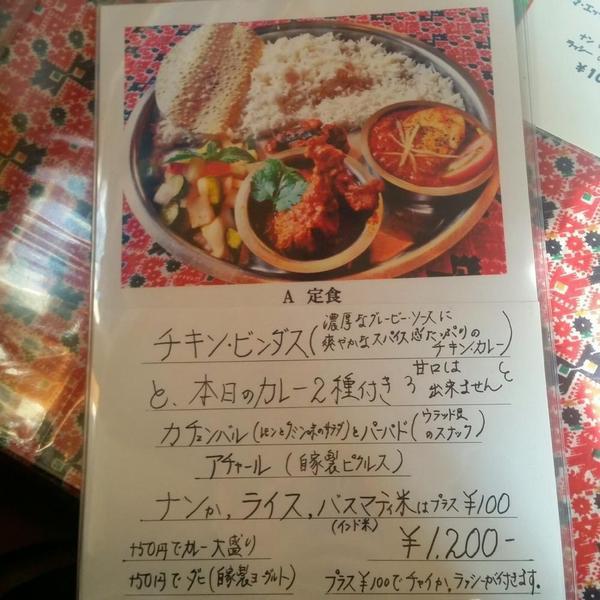 A 定食
チキン・ビンダス(濃厚なグレービー・ソースに
爽やかなスパイス感たっぷりの
チキン・カレー)
と、本日のカレー2種付き
甘口は
出来ません
カチュンバル(レモンとクミン味のサラダ)とパーパド(ウラッド豆
のスナック)
アチャール(自家製ピクルス)
ナンか、ライス、バスマティ米はプラス¥100
(インド米)
¥1,200-
+50円でカレー大盛り
+50円でダヒ(自家製ヨーグルト)
プラス¥100でチャイか、ラッシーが付きます。
ナン
ラッシー